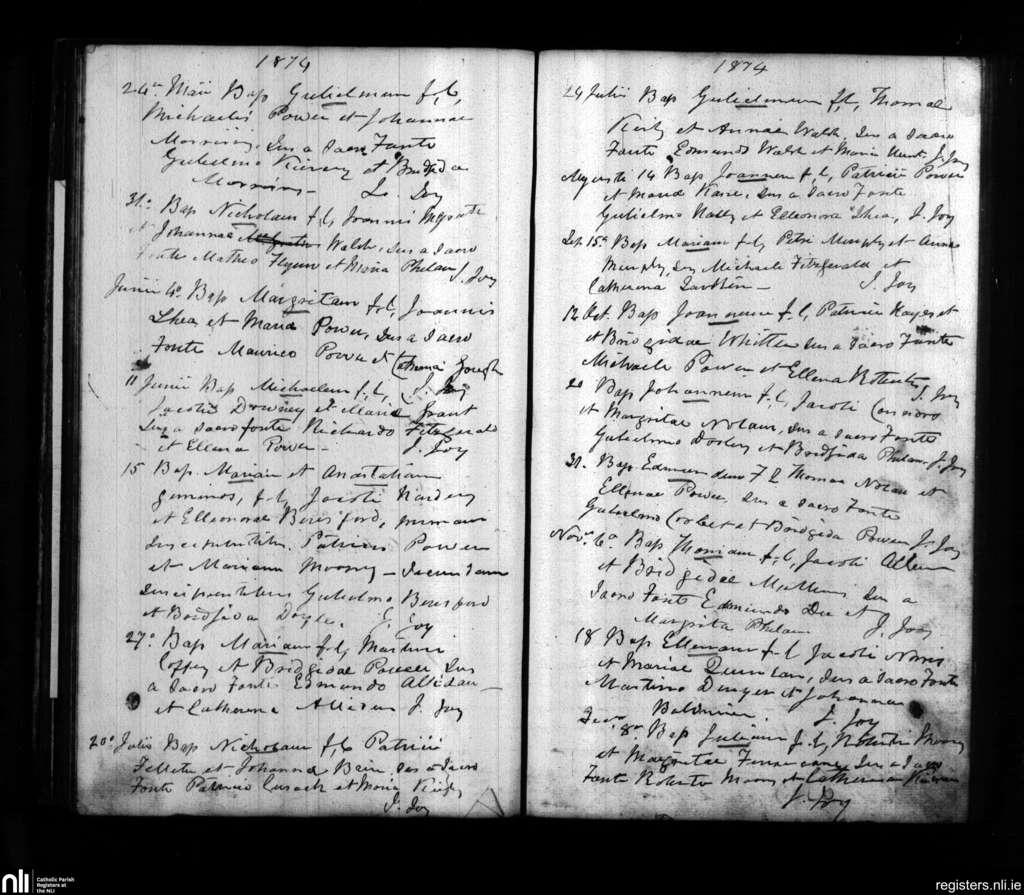 1874
24º Maii Bap Gulielmum f, l,
Michaelis Power et Johannae
Morrissy, Sus a Sacro Fonte
Gulielmo Kiervey et Bridgida
Morrissy — J. Joy
31º Bap Nicholaum f, l, Joannis
et Johannae Walsh, Sus a Sacro
Fonte Matheo Flynn et Maria Phelan J. Joy
Junii 4º Bap Margritam f, l, Joannis
Shea et Maria Power, Sus a Sacro
Fonte Maurico Power et Catherina Gough
J. Joy
11 Junii Bap Michaelem f, l,
Jacobi Downey et Maria Grant
Sus a Sacro fonte Richardo Fitzgerald
et Ellena Power — J. Joy
15 Bap Mariam et Anastatiam
geminos, f, l, Jacobi
et Elleonorae Beresford, primam
Suscipientibus Patricio Power
et Mariam Mooney — Secundam
Suscipientibus Gulielmo Beresford
et Bridgida Doyle. J. Joy
27º Bap Mariam f, l, Martini
Coffey et Bridgidae Power Sus
a Sacro Fonte Edmundo
et Catherina J. Joy
20º Julii Bap Nicholaum f, l, Patricii
et Johanna Sus a Sacro
Fonte Patricio Cusack et Maria
J. Joy
1874
24 Julii Bap Gulielmum f, l, Thomae
et Annae Walsh, Sus a Sacro
Fonte Edmundo Walsh et Maria Hunt J. Joy
Augusti 14 Bap Joannem f, l, Patricii Power
et Maria Sus a Sacro Fonte
Gulielmo Nally et Elleonora Shea, J. Joy
Sep 15º Bap Mariam f, l, Petri Murphy et Anna
Murphy, Sus Michaele Fitzgerald et
Catherina — J. Joy
12 Oct. Bap Joannem f, l, Patricii Hayes et
et Bridgidae Whittle Sus a Sacro Fonte
Michaele Power et Ellena J. Joy
20 Bap Johannem f, l, Jacobi
et Margritae Nolan, Sus a Sacro Fonte
Gulielmo et Bridgida Phelan, J. Joy
31. Bap Edmundum F l Thomae Nolan et
Ellenae Power, Sus a Sacro Fonte
Gulielmo Corbet et Bridgida Power J. Joy
Novr. 6º Bap Thomam f, l, Jacobi Allen
et Bridgidae Sus a
Sacro Fonte Edmundo et
Margrita Phelan J. Joy
18 Bap Ellenam f, l Jacobi
et Mariae Quinlan, Sus a Sacro Fonte
Martino Dwyer et Johanna
J. Joy
8º Bap Julianam f, l, Roberti Mooney
et Margritae Sus a Sacro
Fonte Roberto Mooney et Catherina
J. Joy
nli
Catholic Parish
Registers at
the NLI
registers.nli.ie